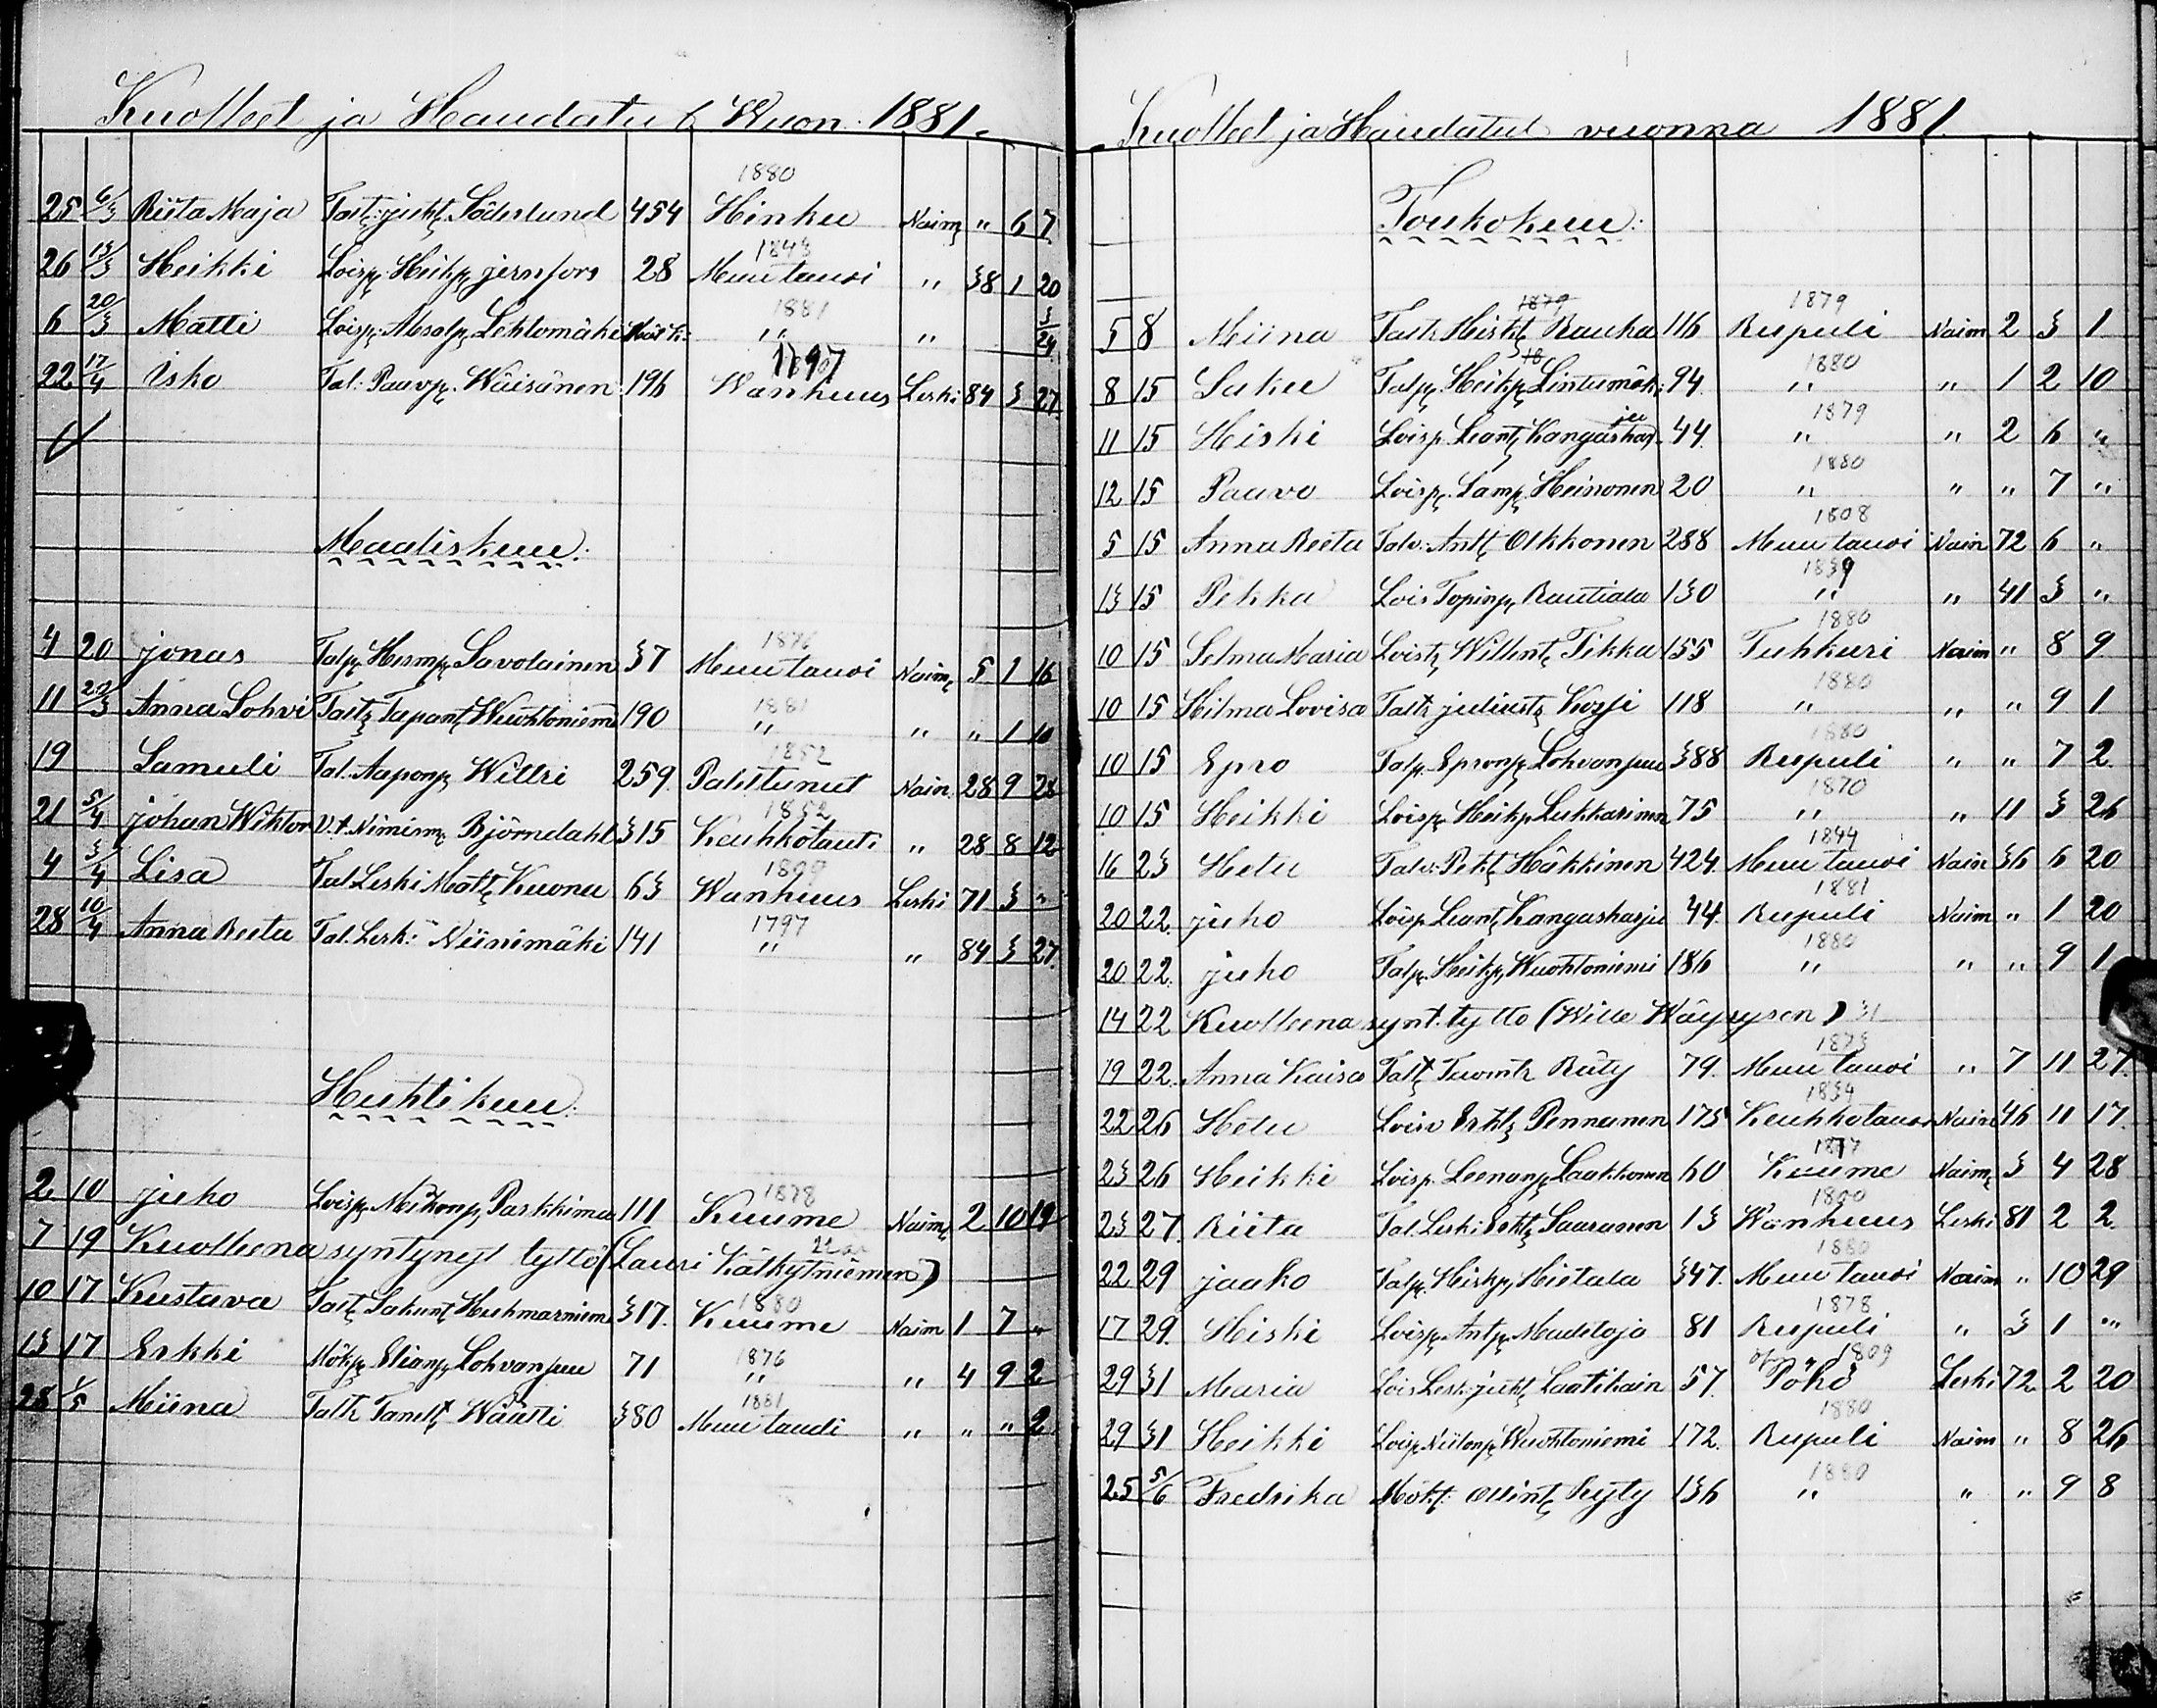 Kuolleet ja Haudatut Wuon. 1881.
1880
25 6/3 Riita Maja Tait. juht. Söderlund 454 Hinku Naim " 6 7
1843
26 13/3 Heikki Loisp. Heikp. jernfors 28 Muu tauvi " 38 1 20
1881
6 20/3 Matti Loisp. Absalp. Lehtomäki " " 3/24
1797
22 17/4 Esko Tal: Paavp. Wäisänen 196 Wanhuus Leski 84 3 27
Maaliskuu:
1876
4 20 jonas Talp. Hermp. Savolainen 37 Muu tauvi Naim 5 1 16
1881
11 20/3 Anna Lohvi Tait. Tapant. Wuohtoniem 190 " " " 1 10
1852
19 Samuli Tal. Aaponp. Willri 259. Palettunut Nain. 28 9 28
1852
21 5/4 johan Wiktor V.t. Nimism. Björndahl 315 Keuhkotauti " 28 8 12
1809
4 3/4 Lisa Tal. Leski Matt. Kuona 63 Wanhuus Leski 71 3 "
1797
28 10/4 Anna Reeta Tal. Lesk: Niinimäki 141 " " 84 3 27.
Huhtikuu:
1878
2 10 juho Loisp. Mikonp. Parkkima 111 Kuume Naim 2 10 19
7 19 Kuolleena syntynyt tyttö (Lauri Kätkytniemen)
1880
10 17 Kustava Tait. Sakunt. Huhmarniem 317. Kuume Naim 1 7 "
1876
13 17 Erkki Mökp. Elianp. Lohvanjuu 71 " " 4 9 2
1881
28 1/5 Miina Taltr. Tanelt. Wäätti 380 Muu taudi " " " 2
Kuolleet ja Haudatut vuonna 1881.
Toukokuu:
1879 1879
5 8 Miina Taltr. Heiskt. Rauha 116 Rupuli Naim 2 3 1
18 1880
8 15 Saku Talp. Heikp. Lintumäk: 94. " " 1 2 10
1879
11 15 Heiski Loisp. Leant. Kangashar ju 44. " " 2 6 "
1880
12 15 Paavo Loisp. Samp. Heinonen 20 " " " 7 "
1808
5 15 Anna Reeta Talv: Antt. Olkkonen 288 Muu tauvi Nain 72 6 "
1839
13 15 Pekka Lois Topinp. Rautiala 130 " " 41 3 "
1880
10 15 Selma Maria Loistr. Willent. Tikka 155 Tuhkuri Naim " 8 9
1880
10 15 Hilma Lovisa Taltr. juliust. Korpi 118 " " " 9 1
1880
10 15 Epro Talp. Epronp. Lohvanjuu 388 Rupuli " " 7 2.
1870
10 15 Heikki Loisp. Heikp. Lukkarinen 75 " " 11 3 26
1844
16 23 Hetu Talv: Pekt. Häkkinen 424. Muu tauvi Nain 36 6 20
1881
20 22. juho Loisp. Leant. Kangasharju 44. Rupuli Naim " 1 20
1880
20 22. juho Talp. Heikp. Wuohtoniemi 186 " " " 9 1
14 22 Kuolleena synt. tyttö (Wille Wäyrysen) 31
1873
19 22. Anna Kaisa Talt. Tuomtr. Räty 79. Muu tauvi " 7 11 27.
1834
22 26 Hetu Loisv Erkt. Pennanen 175 Keuhkotauvi Nain 46 11 17.
1877
23 26 Heikki Loisp. Leenanp. Laakkonen 60 Kuume Naim 3 4 28
1800
23 27. Riita Tal. Leski: Erkt. Saaranen 13 Wanhuus Leski 81 2 2.
1880
22 29 jaako Talp. Heiskp. Hietala 347. Muu tauvi Naim " 10 29
1878
17 29. Heiski Loisp. Antp. Maaletoja 81 Rupuli " 3 1 "
1809
29 31 Maria Lois Lesk. jukt. Laatikain 57. Pöhö Leski 72 2 20
1880
29 31 Heikki Loisp. Niilonp. Wuohtoniemi 172. Rupuli Naim " 8 26
1880
25 5/6 Fredrika Mökt: Ollint. Kyty 136 " " " 9 8